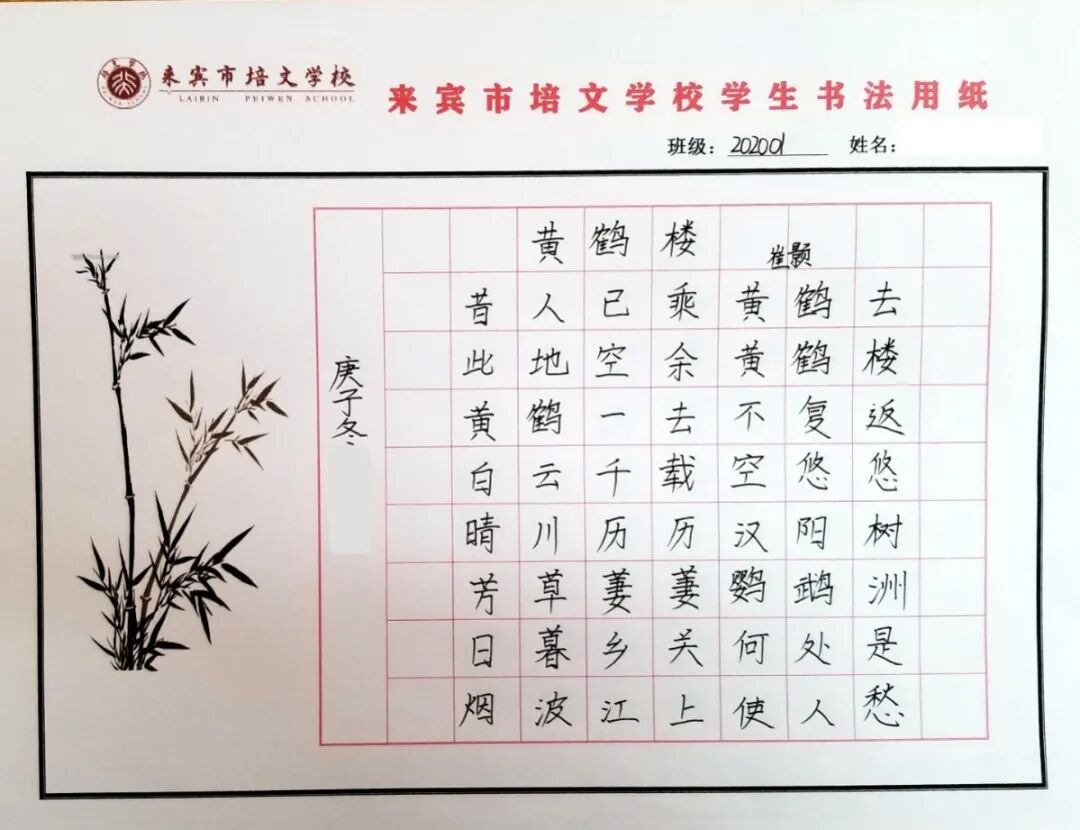 来宾市培文学校
LAIBIN PEIWEN SCHOOL
来宾市培文学校学生书法用纸
班级：202001 姓名：
黄鹤楼
崔颢
昔人已乘黄鹤去
此地空余黄鹤楼
黄鹤一去不复返
白云千载空悠悠
晴川历历汉阳树
芳草萋萋鹦鹉洲
日暮乡关何处是
烟波江上使人愁
庚子冬